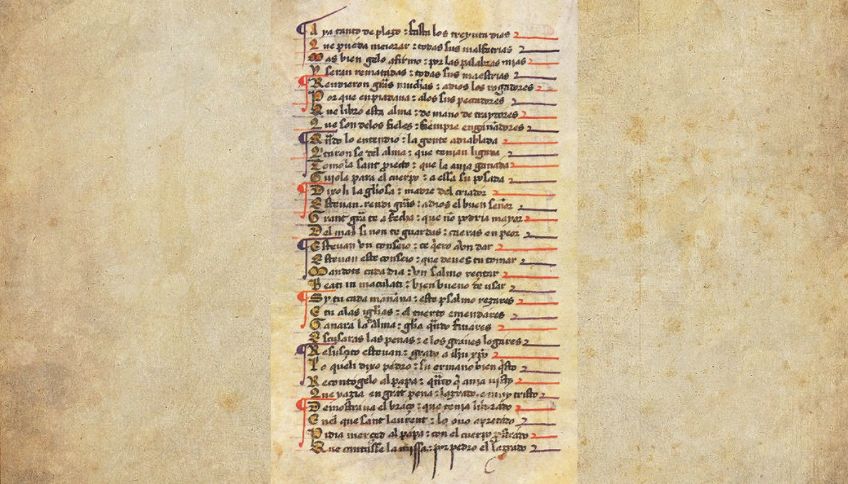 A ya tanto de plazo : fasta los treynta dias
Que pueda meiorar : todas sus malfetrias
Mas bien gelo afirmo : por las palabras mias
Y seran rematadas : todas sus maestrias
Rendieron grãs muchas : a dios los rogadores
Por que en piadaua : a los sus pecadores
Que libro esta alma : de mano de traytores
Que son delos fieles : siempre engañadores
Quãdo lo entendio : la gente adiablada
Quitaron se del alma : que tenian ligada
Tomola sant proiecto : que la auia ganada
Guiola para el cuerpo : a essa su posada
Dixoli la gl̃iosa : madre del criador
Esteuan rendi grãs : a dios el buen señor
Grant grã te a fecha : que nõ podria mayor
Del mal si non te guardas : caeras en peor
Esteuan vn conseio : te q̃ero aun dar
Esteuan este conseio : que deues tu tomar
Mandote cada dia : vn salmo rezar
Beati inmaculati : bien bueno de vsar
Sy tu cada mañana : este psalmo rezares
E tu alas iglesias : el tuerto emendares
Ganara la alma : gl̃ia quãdo finares
Escusaras las penas : e los graues logares
Resuscito esteuan : grado a ihũ xp̃o
Lo queli dixo pedro : su ermano bien q̃sto
Recontogelo al papa : quãto que auia visto
Que yazia en grãt pena : lazrado e muy tristo
Demostraua el braço : que tenia liurado
Enel que sant laurent : lo ouo apretado
Pidia merced al papa : con el cuerpo postrado
Que cantasse la missa : por pedro el lazrado